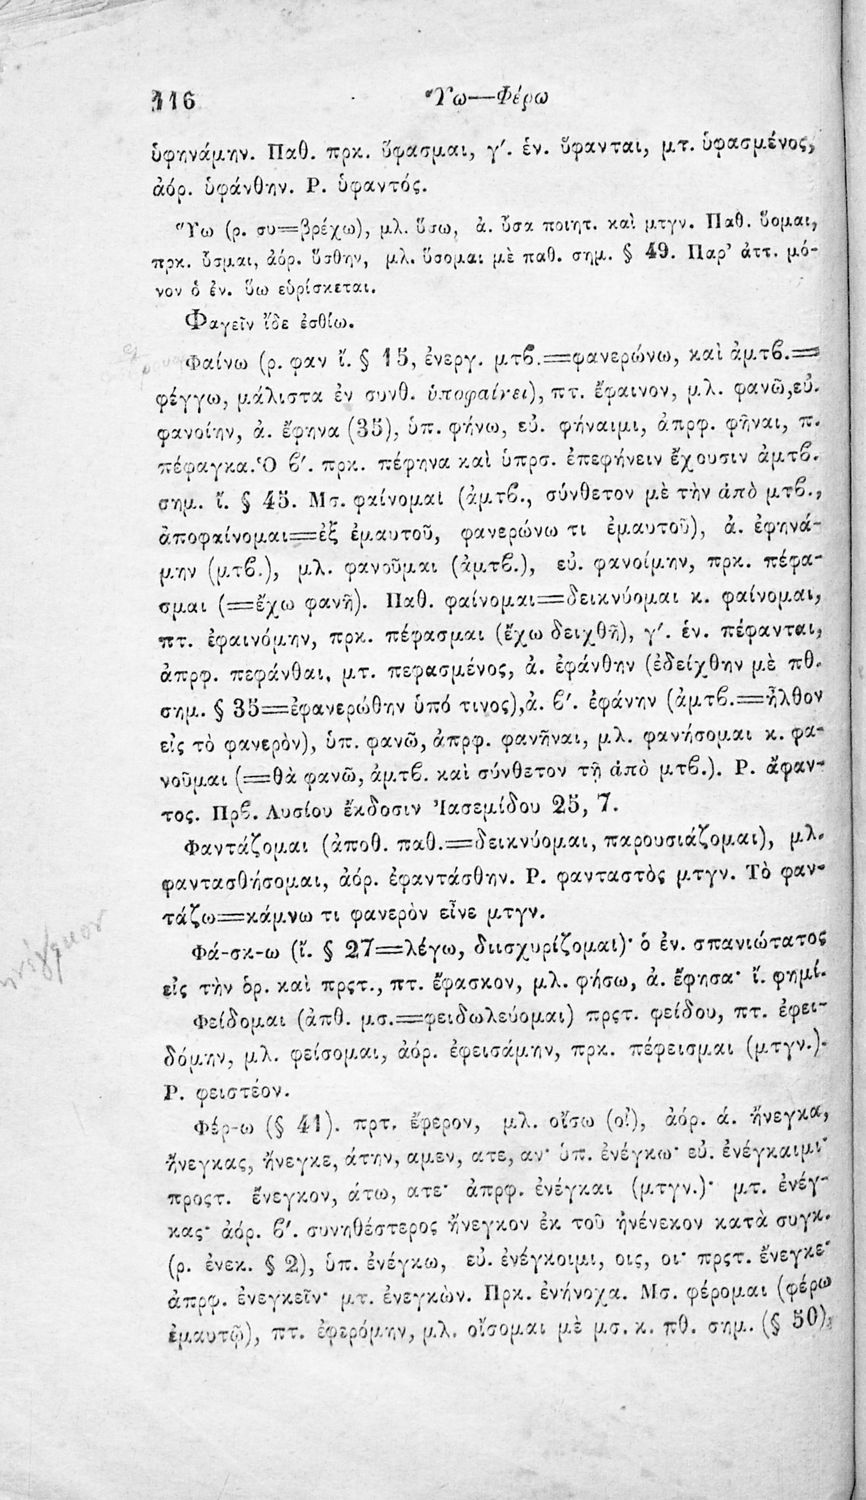 116 Ὕω—Φέρω
ὑφηνάμην. Παθ. πρκ. ὕφασμαι, γ΄. ἑν. ὕφανται, μτ. ὑφασμένος,
ἀόρ. ὑφάνθην. Ρ. ὑφαντός.
Ὕω (ρ. συ=βρέχω), μλ. ὕσω, ἀ. ὗσα ποιητ. καὶ μτγν. Παθ. ὕομαι,
πρκ. ὗσμαι, ἀόρ. ὕσθην, μλ. ὕσομαι μὲ παθ. σημ. § 49. Παρ’ ἀττ. μό-
νον ὁ ἐν. ὕω εὑρίσκεται.
Φαγεῖν ἴδε ἐσθίω.
Φαίνω (ρ. φαν ἴ. § 15, ἐνεργ. μτϐ.=φανερώνω, καὶ ἀμτϐ.=
φέγγω, μάλιστα ἐν συνθ. ὑποφαίνει), πτ. ἔφαινον, μλ. φανῶ,εὐ.
φανοίην, ἀ. ἔφηνα (35), ὑπ. φήνω, εὐ. φήναιμι, ἀπρφ. φῆναι, π.
πέφαγκα. Ὁ ϐ΄. πρκ. πέφηνα καὶ ὑπρσ. ἐπεφήνειν ἔχουσιν ἀμτϐ.
σημ. ἴ. § 45. Μσ. φαίνομαι (ἀμτϐ., σύνθετον μὲ τὴν ἀπὸ μτϐ.,
ἀποφαίνομαι=ἐξ ἐμαυτοῦ, φανερώνω τι ἐμαυτοῦ), ἀ. ἐφηνά-
μην (μτϐ.), μλ. φανοῦμαι (ἀμτϐ.), εὐ. φανοίμην, πρκ. πέφα-
σμαι (=ἔχω φανῆ). Παθ. φαίνομαι=δεικνύομαι κ. φαίνομαι,
πτ. ἐφαινόμην, πρκ. πέφασμαι (ἔχω δειχθῆ), γ΄. ἑν. πέφανται,
ἀπρφ. πεφάνθαι, μτ. πεφασμένος, ἀ. ἐφάνθην (ἐδείχθην μὲ πθ.
σημ. § 35=ἐφανερώθην ὑπό τινος),ἀ. ϐ΄. ἐφάνην (ἀμτϐ.=ἦλθον
εἰς τὸ φανερὸν), ὑπ. φανῶ, ἀπρφ. φανῆναι, μλ. φανήσομαι κ. φα-
νοῦμαι (=θὰ φανῶ, ἀμτϐ. καὶ σύνθετον τῇ ἀπὸ μτϐ.). Ρ. ἄφαν-
τος. Πρϐ. Λυσίου ἔκδοσιν Ἰασεμίδου 25, 7.
Φαντάζομαι (ἀποθ. παθ.=δεικνύομαι, παρουσιάζομαι), μλ.
φαντασθήσομαι, ἀόρ. ἐφαντάσθην. Ρ. φανταστὸς μτγν. Τὸ φαν-
τάζω=κάμνω τι φανερὸν εἶνε μτγν.
Φά-σκ-ω (ἴ. § 27=λέγω, διισχυρίζομαι)· ὁ ἐν. σπανιώτατος
εἰς τὴν ὁρ. καὶ πρςτ., πτ. ἔφασκον, μλ. φήσω, ἀ. ἔφησα· ἴ. φημί.
Φείδομαι (ἀπθ. μσ.=φειδωλεύομαι) πρςτ. φείδου, πτ. ἐφει-
δόμην, μλ. φείσομαι, ἀόρ. ἐφεισάμην, πρκ. πέφεισμαι (μτγν.).
Ρ. φειστέον.
Φέρ-ω (§ 41). πρτ. ἔφερον, μλ. οἴσω (οἰ), ἀόρ. ά. ἤνεγκα,
ἤνεγκας, ἤνεγκε, άτην, αμεν, ατε, αν· ὑπ. ἐνέγκω· εὐ. ἐνέγκαιμι·
προςτ. ἔνεγκον, άτω, ατε· ἀπρφ. ἐνέγκαι (μτγν.)· μτ. ἐνέγ-
κας· ἀόρ. ϐ΄. συνηθέστερος ἤνεγκον ἐκ τοῦ ἠνένεκον κατὰ συγκ.
(ρ. ἐνεκ. § 2), ὑπ. ἐνέγκω, εὐ. ἐνέγκοιμι, οις, οι· πρςτ. ἔνεγκε·
ἀπρφ. ἐνεγκεῖν· μτ. ἐνεγκὼν. Πρκ. ἐνήνοχα. Μσ. φέρομαι (φέρω
ἐμαυτῷ), πτ. ἐφερόμην, μλ. οἴσομαι μὲ μσ. κ. πθ. σημ. (§ 50),